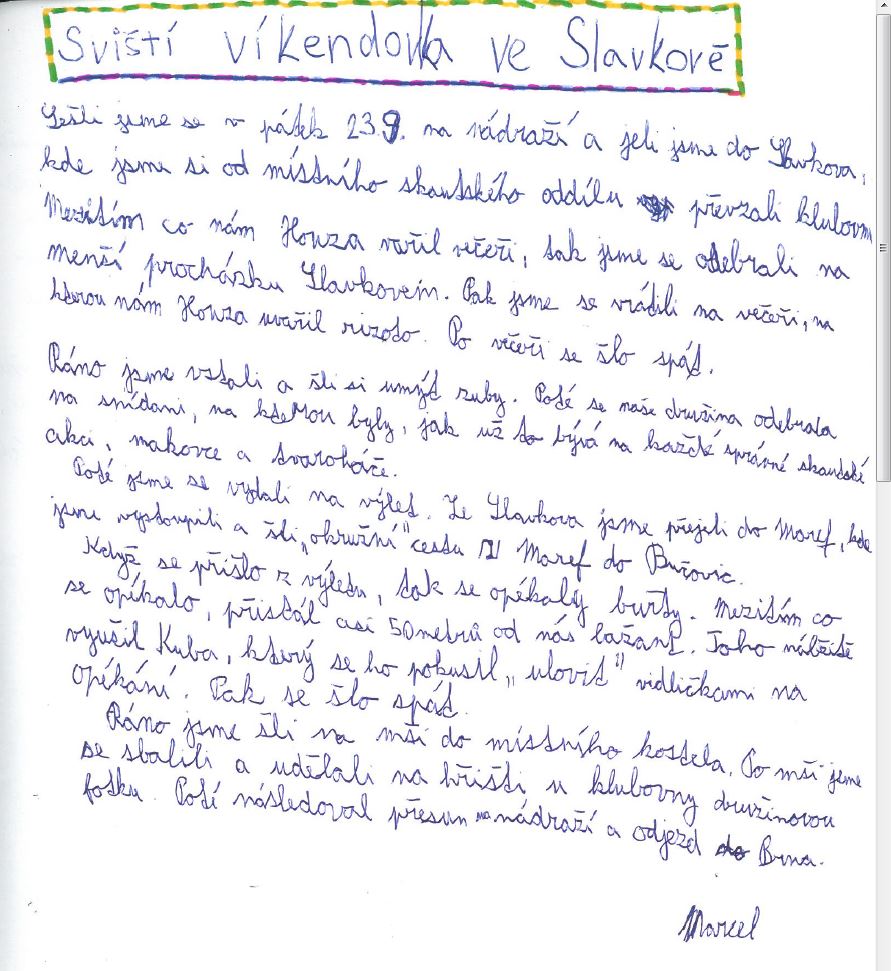 Sviští víkendovka ve Slavkově
Sešli jsme se v pátek 23.9. na nádraží a jeli jsme do Slavkova,
kde jsme si od místního skautského oddílu převzali klubovnu
Mezitím co nám Houza vařil večeři, tak jsme se odebrali na
menší procházku Slavkovem. Pak jsme se vrátili na večeři, na
kterou nám Houza uvařil rizoto. Po večeři se šlo spát.
Ráno jsme vstali a šli si umýt zuby. Poté se naše družina odebrala
na snídani, na kterou byly, jak už to bývá na každé správné skautské
akci, makovce a tvaroháče.
Poté jsme se vydali na výlet. Ze Slavkova jsme přejeli do Maref, kde
jsme vystoupili a šli „okružní" cestu z Maref do Bučovic.
Když se přišlo z výletu, tak se opékaly buřty. Mezitím co
se opékalo, přistál asi 50 metrů od nás bažant. Toho náležitě
využil Kuba, který se ho pokusil „ulovit" vidličkami na
opékání. Pak se šlo spát.
Ráno jsme šli na mši do místního kostela. Po mši jsme
se sbalili a udělali na hřišti u klubovny družinovou
fotku. Poté následoval přesun na nádraží a odjezd do Brna.
Marcel